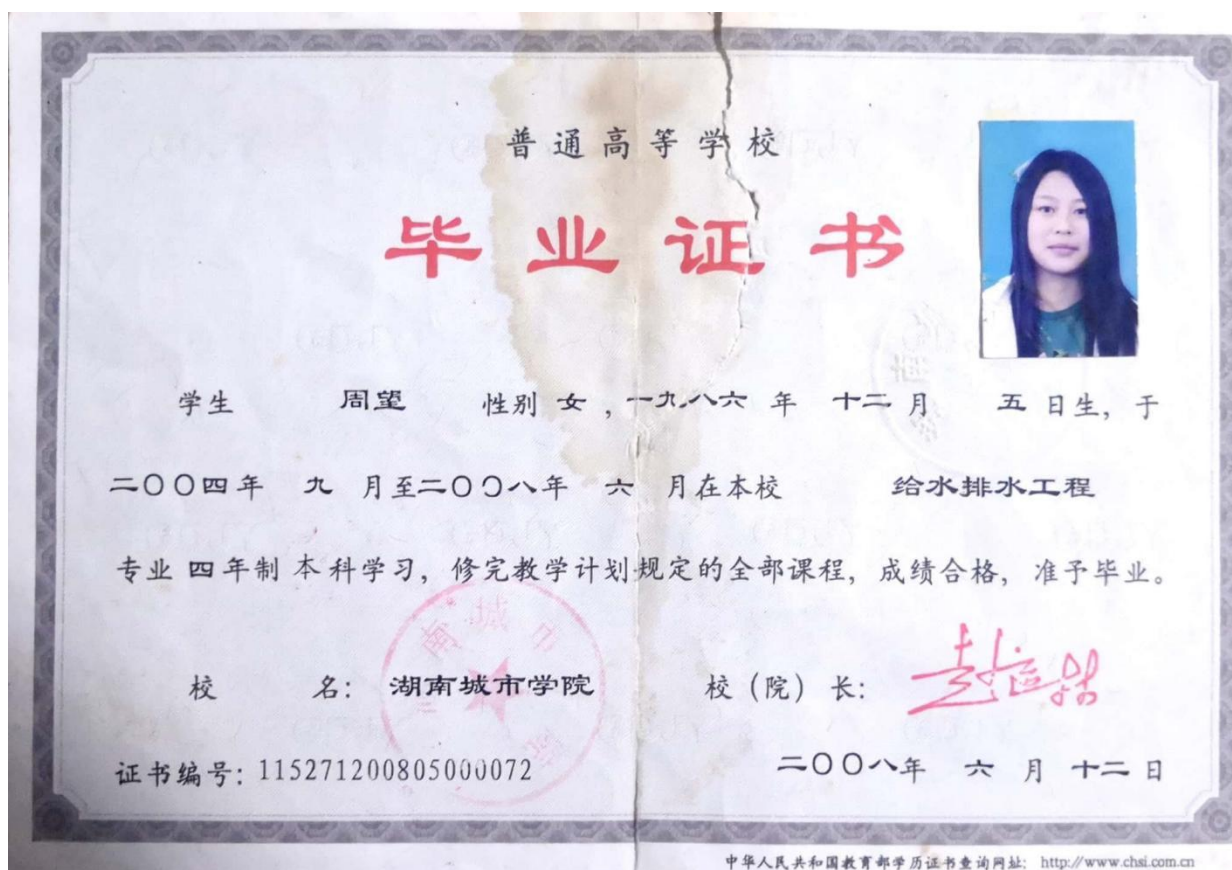 普通高等学校
毕业证书
学生 周望 性别 女，一九八六 年 十二 月 五 日生，于
二〇〇四年 九 月至二〇〇八年 六 月在本校 给水排水工程
专业 四年制 本科学习，修完教学计划规定的全部课程，成绩合格，准予毕业。
校 名： 湖南城市学院 校（院）长：
证书编号：115271200805000072 二〇〇八年 六 月 十二 日
中华人民共和国教育部学历证书查询网址： http://www.chsi.com.cn